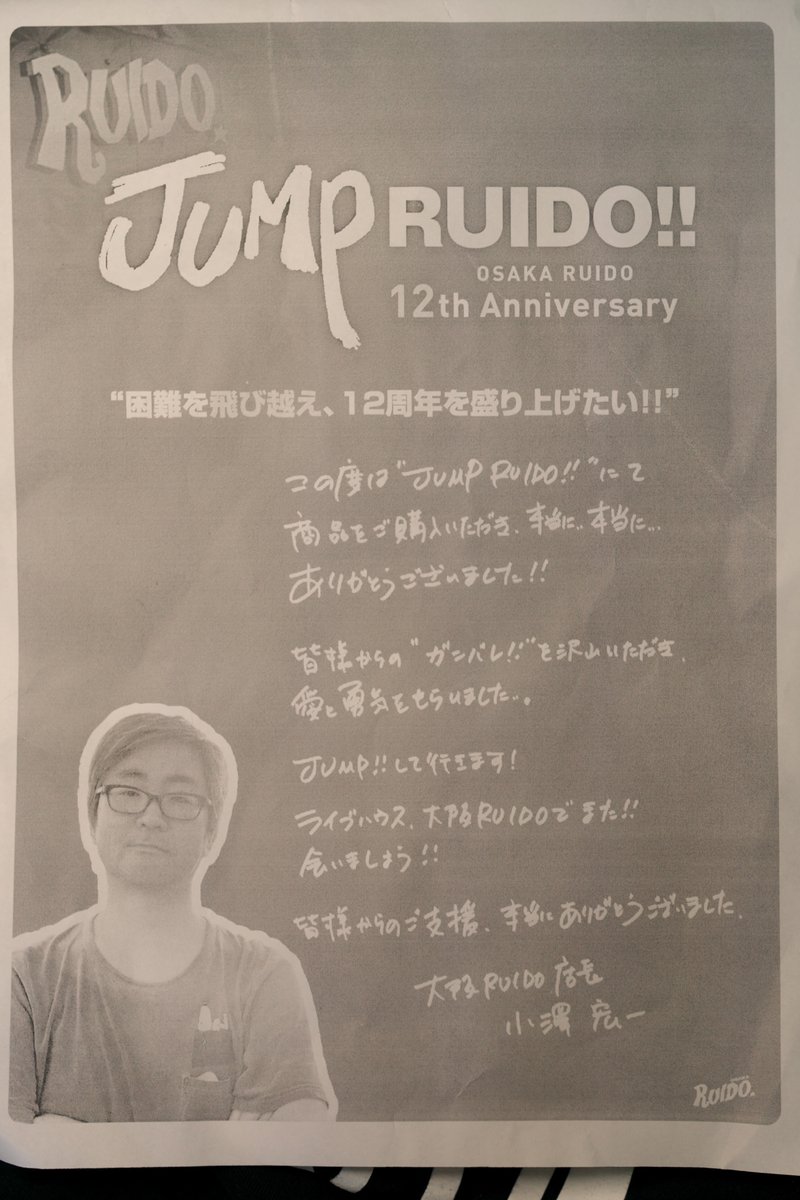 RUIDO
JUMP RUIDO!!
OSAKA RUIDO
12th Anniversary
“困難を飛び越え、12周年を盛り上げたい!!”
この度は"JUMP RUIDO!!"にて
商品をご購入いただき、本当に…本当に…
ありがとうございました!!
皆様からの"ガンバレ!!"を沢山いただき、
愛と勇気をもらいました…。
JUMP!!して行きます!
ライブハウス、大阪RUIDOでまた!!
会いましょう!!
皆様からのご支援、本当にありがとうございました。
大阪RUIDO 店長
小澤 宏一
RUIDO.